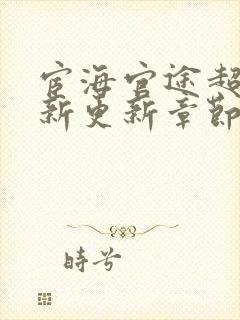 宦海官途超
新更新章節
時兮